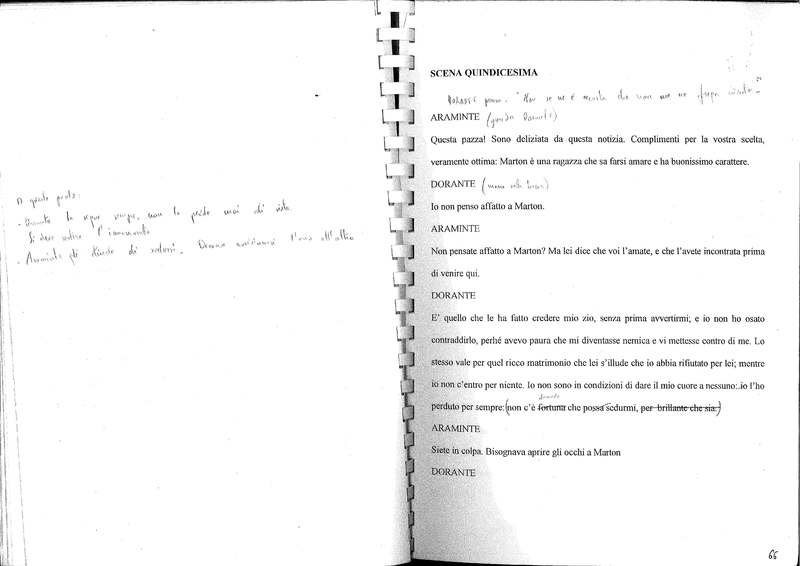 A questo punto:
- Dorante la segue sempre, non la perde mai di vista.
Si deve sentire l'innamorato
- Araminte gli chiede di sedersi. Devono avvicinarsi l'uno all'altro
SCENA QUINDICESIMA
DORANTE "Non se ne è che non me ne
ARAMINTE (guarda Dorante)
Questa pazza! Sono deliziata da questa notizia. Complimenti per la vostra scelta,
veramente ottima: Marton è una ragazza che sa farsi amare e ha buonissimo carattere.
DORANTE (
Io non penso affatto a Marton.
ARAMINTE
Non pensate affatto a Marton? Ma lei dice che voi l'amate, e che l'avete incontrata prima
di venire qui.
DORANTE
E' quello che le ha fatto credere mio zio, senza prima avvertirmi; e io non ho osato
contraddirlo, perhé avevo paura che mi diventasse nemica e vi mettesse contro di me. Lo
stesso vale per quel ricco matrimonio che lei s'illude che io abbia rifiutato per lei; mentre
io non c'entro per niente. Io non sono in condizioni di dare il mio cuore a nessuno:.io l'ho
perduto per sempre:(non c'è fortuna che possa sedurmi, per brillante che sia.)
ARAMINTE
Siete in colpa. Bisognava aprire gli occhi a Marton
DORANTE
66